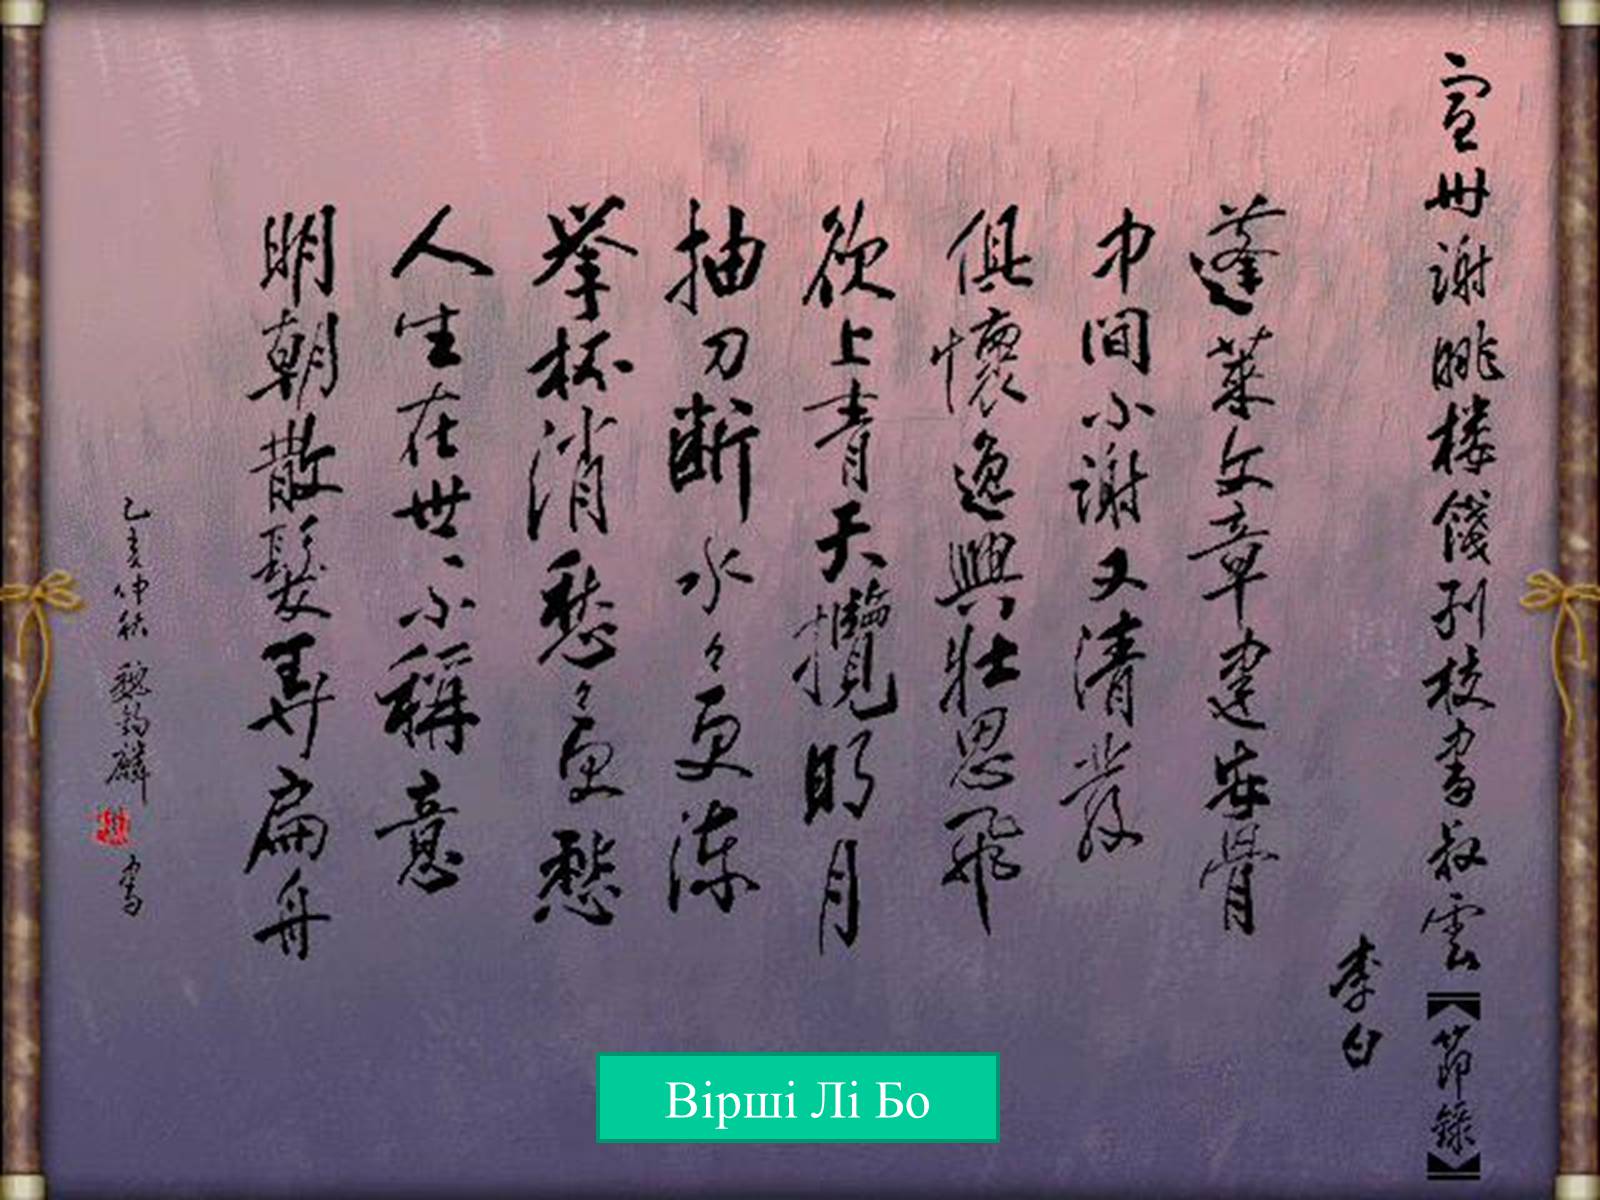 宣州謝眺楼餞别校書叔雲【節錄】
李白
蓬萊文章建安骨
中間小謝又清發
俱懷逸興壯思飛
欲上青天攬明月
抽刀断水々更流
举杯消愁々更愁
人生在世不稱意
明朝散髮弄扁舟
亥仲秋 魏鈞麟 書
Вірші Лі Бо